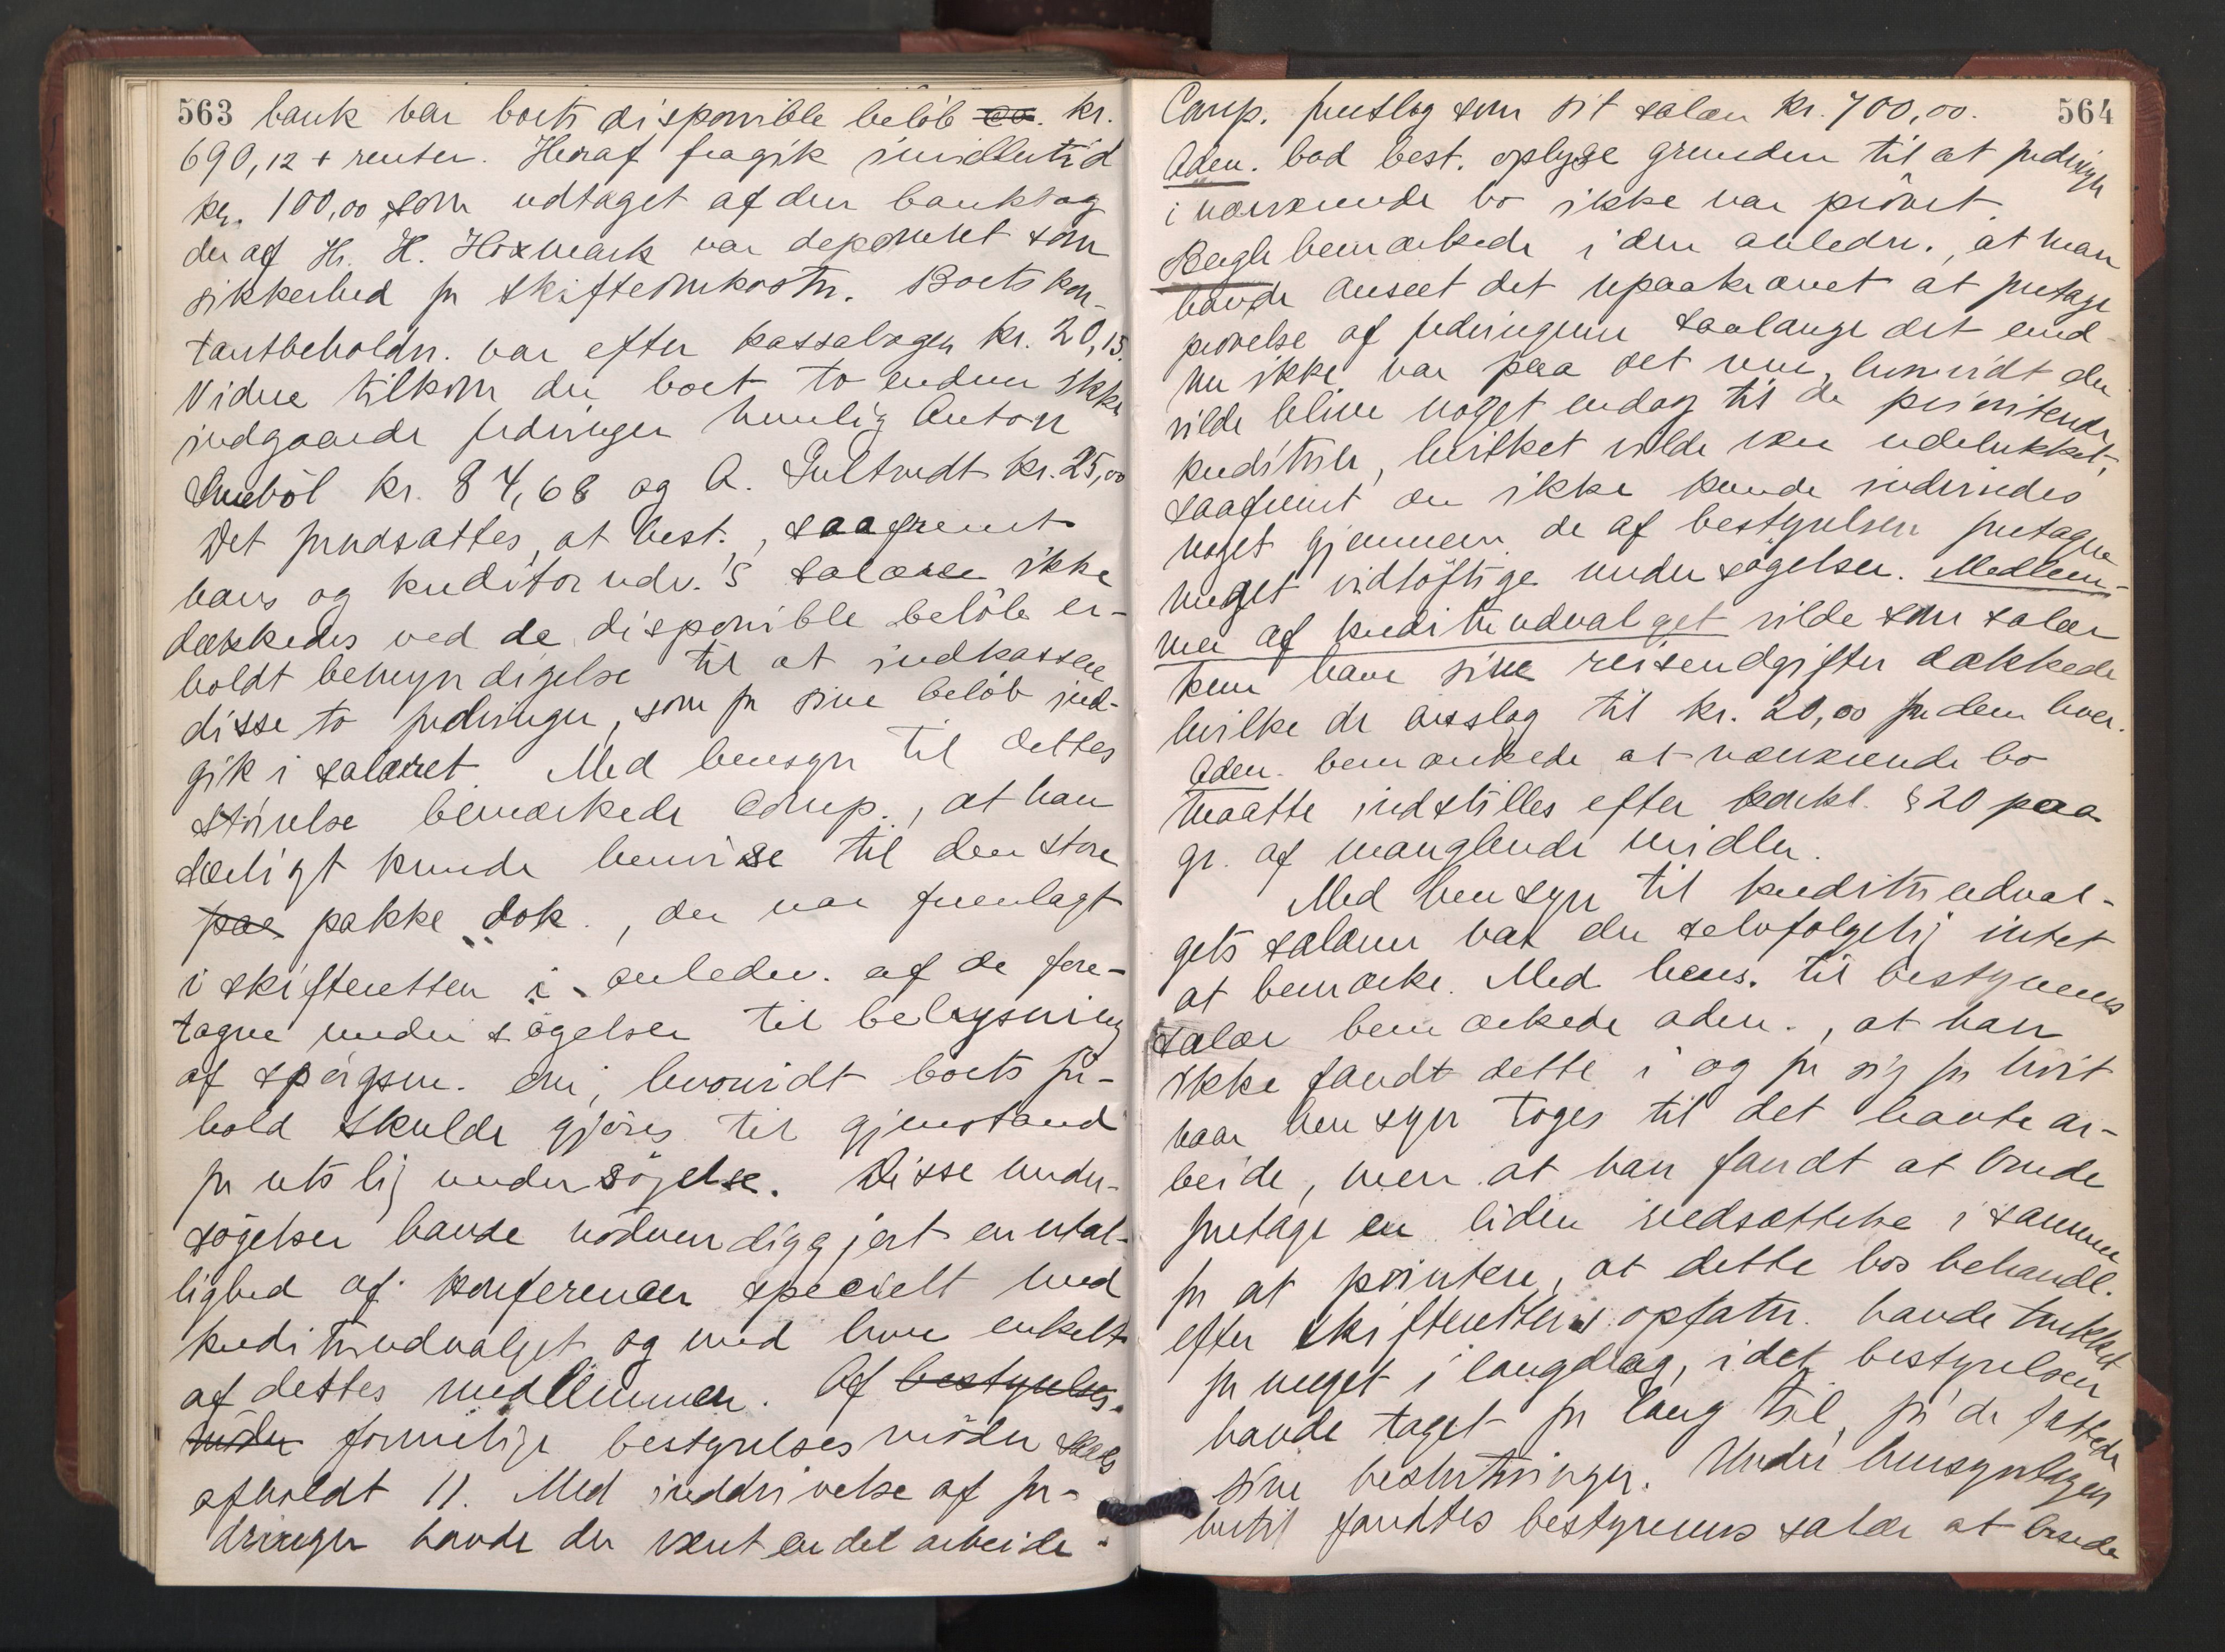 563 bank var boets disponible beløb ca. kr.
690,12 + renter. Heraf fragik imidlertid
kr. 100,00 som udtaget af den bankbog
der af Hr. H. Hoxmark var deponeret som
sikkerhed for skifteomkostn. Boets kon-
tantbeholdn. var efter kassabogen kr. 20,15.
Videre tilkom der boet to endnu ikke
indgaaede fordringer nemlig Anton
kr. 84,68 og A. Gultvedt kr. 25,00
Det forudsattes, at best., saafremt
hans og kreditorudv.'s salærer ikke
dækkedes ved de disponible beløb er-
holdt bemyndigelse til at indkassere
disse to fordringer, som for sine beløb ind-
gik i salæret. Med hensyn til dettes
størrelse bemærkede Comp., at han
særligt kunde henvise til den store
pae pakke dok., der var fremlagt
i skifteretten i anledn. af de fore-
tagne undersøgelser til belysning
af spørgsm. om, hvorvidt boets for-
hold skulde gjøres til gjenstand
for retslig undersøgelse. Disse under-
søgelser havde nødvendiggjort en utal-
lighed af konferencer specielt med
kreditorudvalget og med hver enkelt
af dettes medlemmer. Af bestyrelses-
møder formelige bestyrelsesmøder
afholdt 11. Med inddrivelse af for-
dringer havde der været en del arbeide.
Comp. foreslog som sit salær kr. 700,00. 564
Adm. bad best. oplyse grunden til at fordringer
i nærværende bo ikke var prøvet.
bemærkede i den anledn., at man
havde anseet det upaakrævet at foretage
prøvelse af fordringerne saalænge det end-
nu ikke var paa det rene, hvorvidt der
vilde blive noget endog til de prioriterede
kreditorer, hvilket vilde være udelukket,
saafremt der ikke kunde inddrives
noget gjennem de af bestyrelsen foretagne
meget vidtløftige undersøgelser. Medlem-
mer af kreditorudvalget vilde som salær
kun have sine reiseudgifter dækkede
hvilke de ansslog til kr. 20,00 for dem hver.
Adm. bemærkede at nærværende bo
maatte indstilles efter konkl. § 20 paa
gr. af manglende midler.
Med hensyn til kreditorudval-
gets salærer var der selvfølgelig intet
at bemærke. Med hens. til bestyrerens
salær bemærkede adm., at han
ikke fandt dette i og for sig for høit
naar hensyn toges til det havte ar-
beide, men at han fandt at burde
foretage en liden nedsættelse i samme
for at pointere, at dette bos behandl.
efter skifterettens opfatn. havde trukket
for meget i langdrag, idet bestyrelsen
havde taget for lang tid, før de fattede
sine beslutninger. Under hensyntagen
hertil fandtes bestyrerens salær at burde